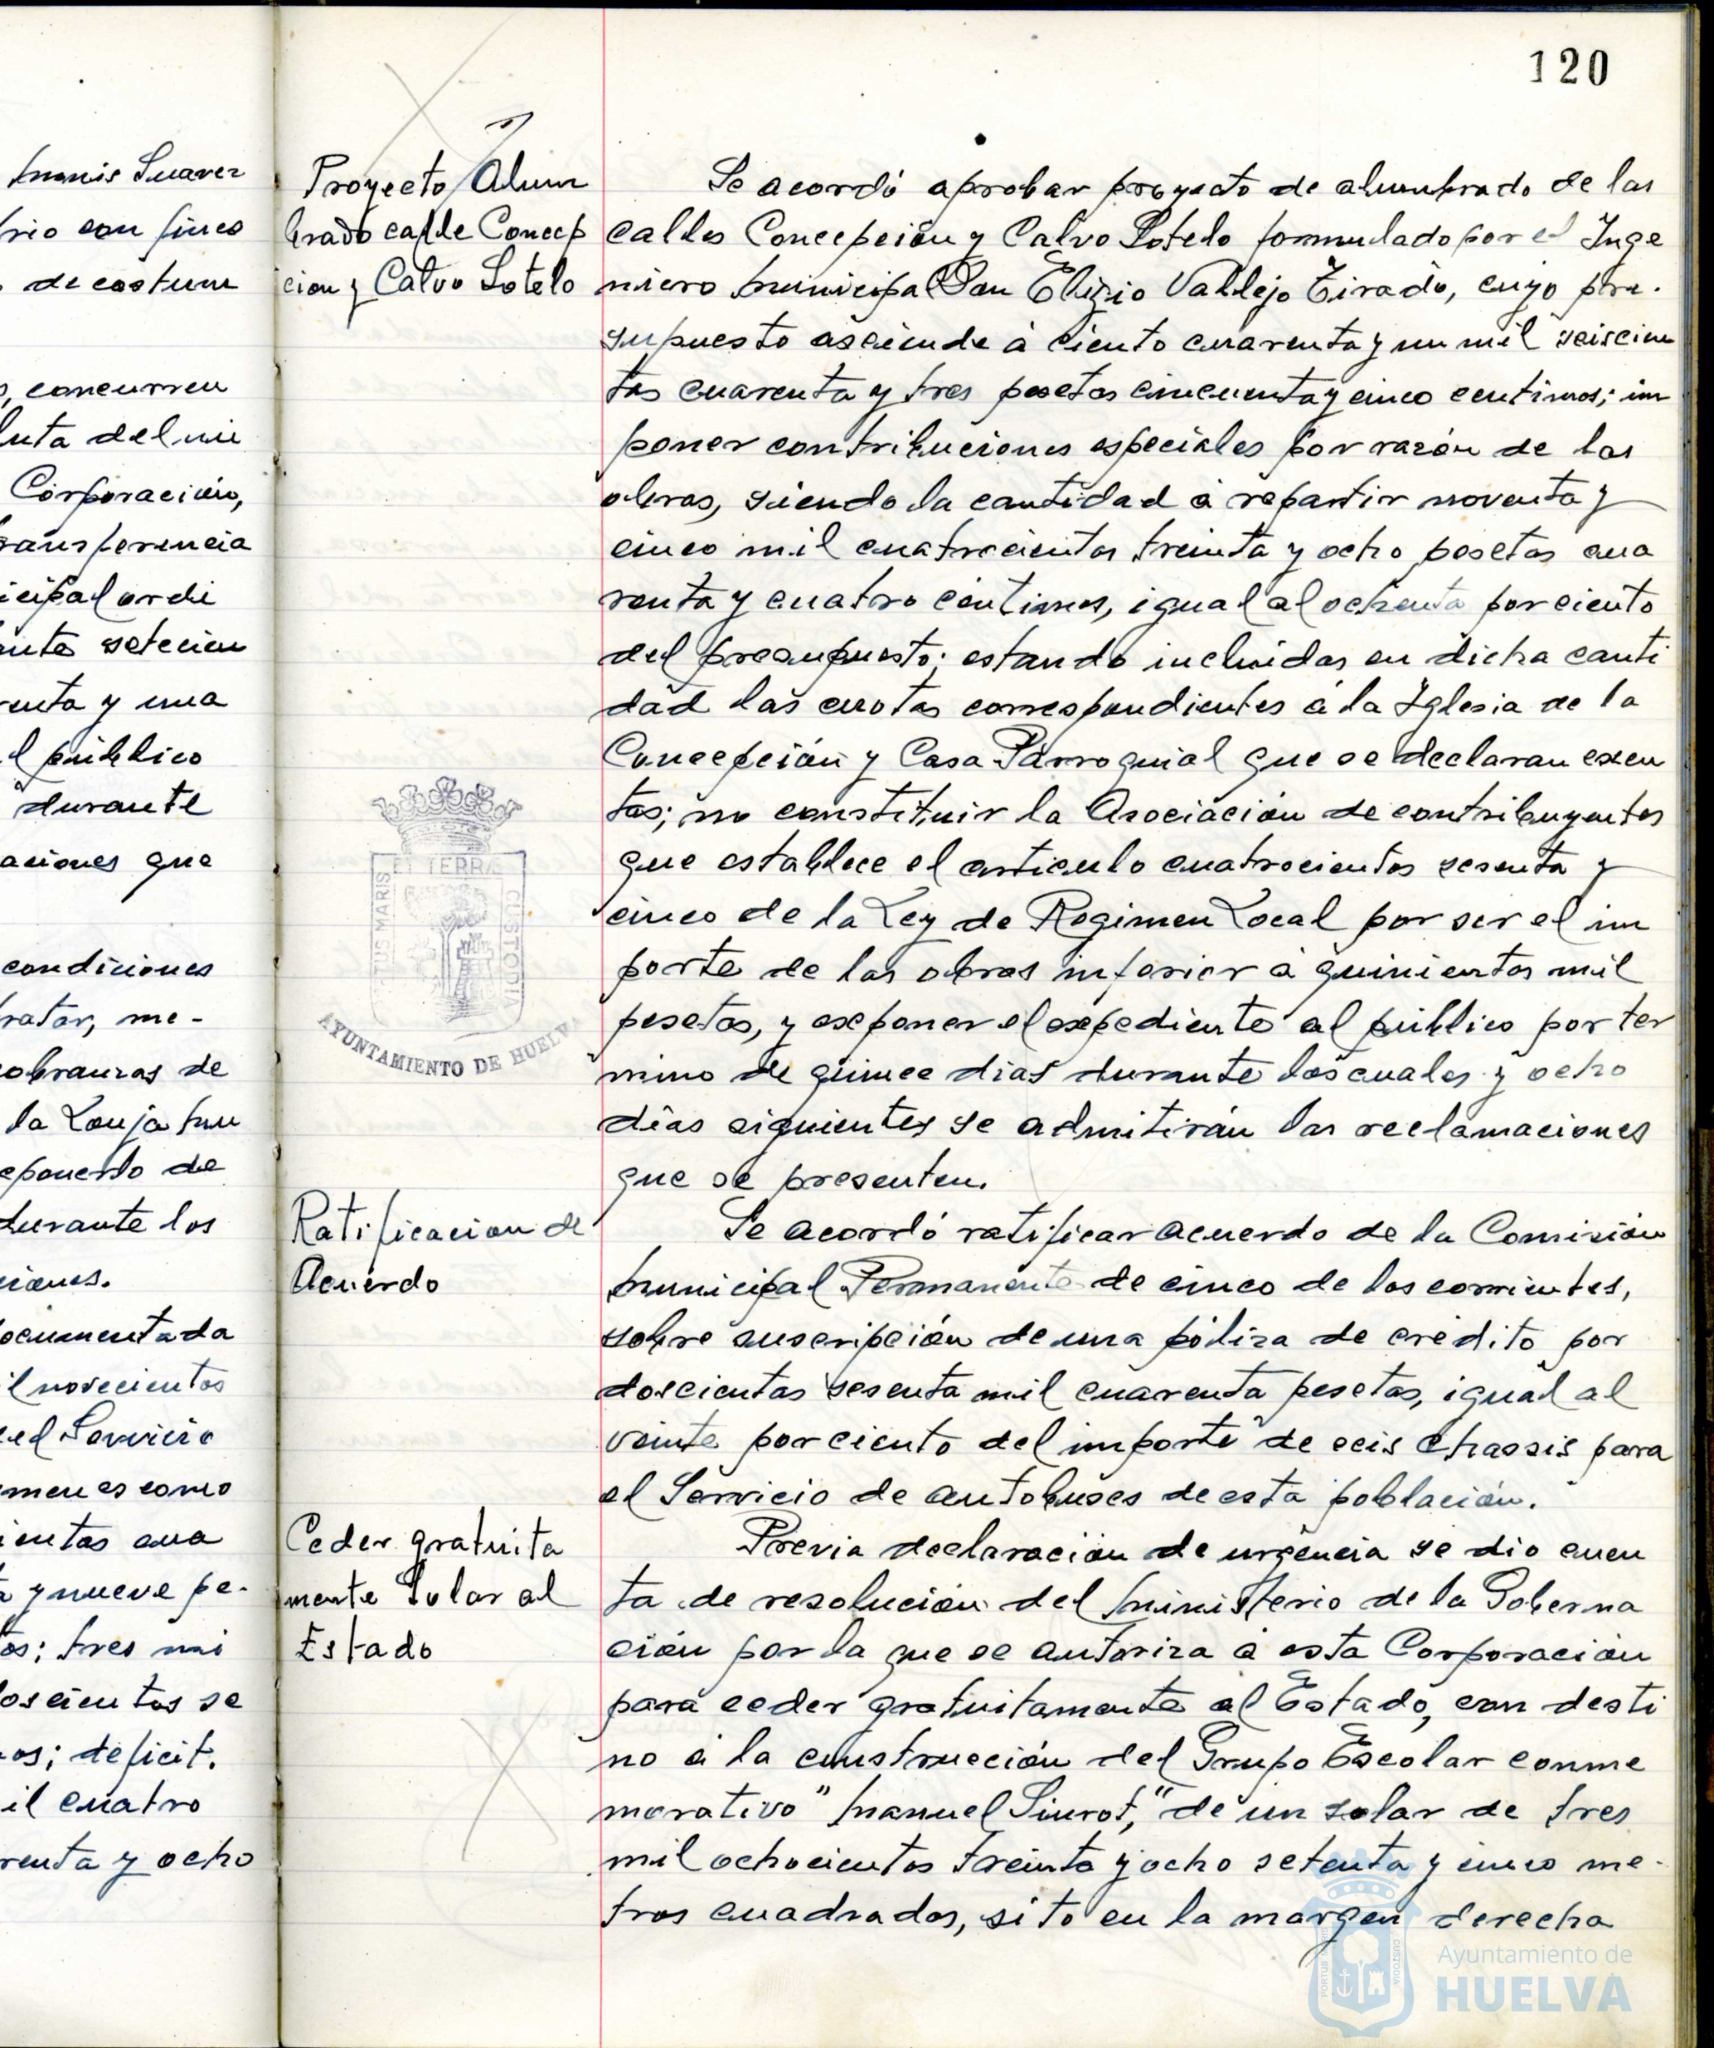 120
munis Suarez
rio con fines
de costum
s, concurren
luta del nú
Corporación,
ransferencia
icipal ordi
ante setecien
renta y una
l público
durante
aciones que
condiciones
ratar, me-
obranzas de
la Lonja mu
eponerlo de
durante los
ciones.
ocumentada
il novecientos
el Servicio
menes como
ientos cua
a y nueve pe-
tos; tres mi
doscientos se
os; deficit.
il cuatro
renta y ocho
Proyecto Alum
brado calle Concep
cion y Calvo Sotelo
Se acordó aprobar proyecto de alumbrado de las
calles Concepción y Calvo Sotelo formulado por el Inge
niero Municipal Don Eligio Vallejo Tirado, cuyo pre-
supuesto asciende á ciento cuarenta y un mil seiscien
tas cuarenta y tres pesetas cincuenta y cinco centimos; im
poner contribuciones especiales por razón de las
obras, siendo la cantidad á repartir noventa y
cinco mil cuatrocientas treinta y ocho pesetas cua
renta y cuatro céntimos, igual al ochenta por ciento
del presupuesto; estando incluidas en dicha canti
dad las cuotas correspondientes á la Iglesia de la
Concepción y Casa Parroquial que se declaran exen
tas; no constituir la Asociación de contribuyentes
que establece el articulo cuatrocientos sesenta y
cinco de la Ley de Regimen Local por ser el im
porte de las obras inferior á quinientas mil
pesetas, y exponer el expediente al público por ter
mino de quince dias durante los cuales y ocho
dias siguientes se admitirán las reclamaciones
que se presenten.
Ratificacion de
Acuerdo
Se acordó ratificar acuerdo de la Comisión
Municipal Permanente de cinco de los corrientes,
sobre suscripción de una póliza de crédito por
doscientas sesenta mil cuarenta pesetas, igual al
veinte por ciento del importe de seis chassis para
el Servicio de autobuses de esta población.
Ceder gratuita
mente Solar al
Estado
Previa declaración de urgencia se dio cuen
ta de resolución del Ministerio de la Goberna
ción por la que se autoriza á esta Corporación
para ceder gratuitamente al Estado, con desti
no á la construcción del Grupo Escolar conme
morativo "Manuel Siurot," de un solar de tres
mil ochocientos treinta y ocho setenta y cinco me-
tros cuadrados, sito en la margen derecha
TUS MARIS
ET TERRÆ
CUSTODIA
AYUNTAMIENTO DE HUELVA
Ayuntamiento de
HUELVA